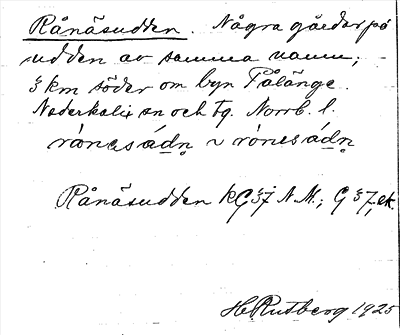 Rånäsudden. Några gårdar på
udden av samma namn;
3 km söder om byn Pålänge.
Nederkalix sn och tg. Norrb. l.
rå̀nesádn̥ ~ rónesádn̥
Rånäsudden kG37 N.M.; G37, ek.
H. Rutberg 1925